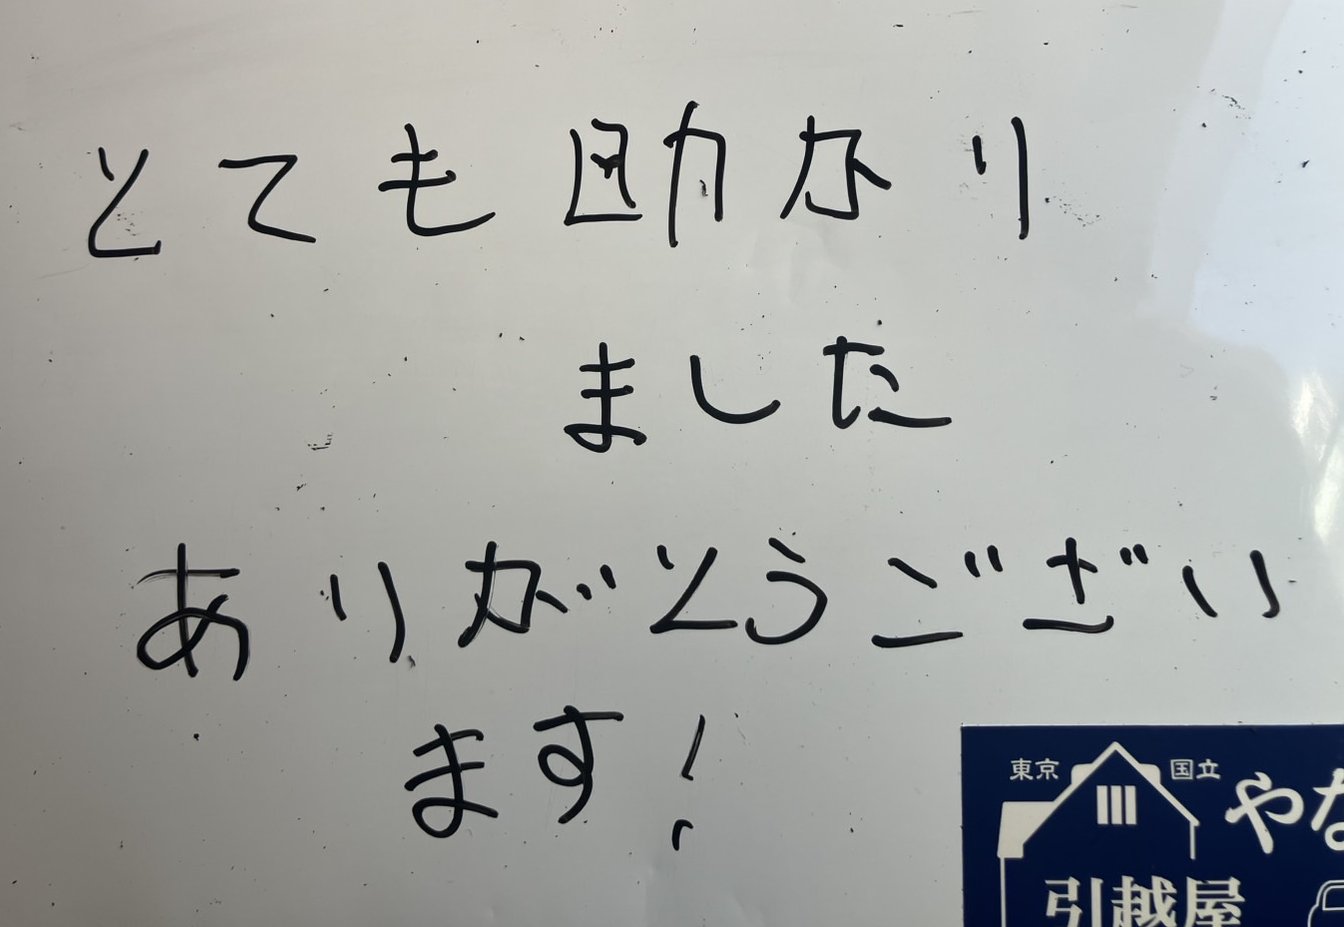 とても助かり
ました
ありがとうござい
ます!
東京 国立
引越屋